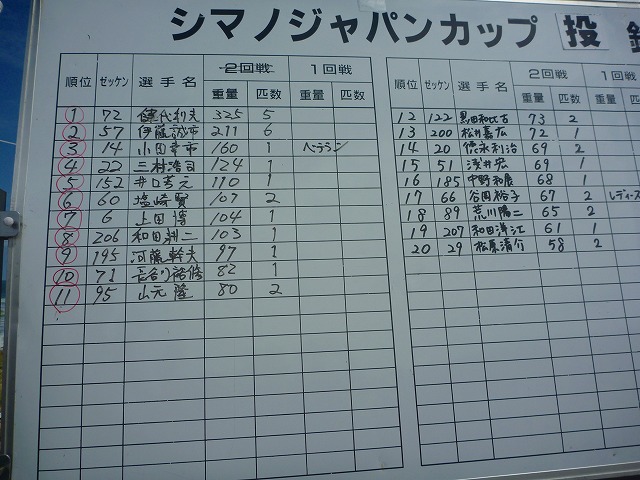 シマノジャパンカップ 投
順位 ゼッケン 選手名 2回戦 1回戦
重量 匹数 重量 匹数
1 72 325 5
2 57 伊藤誠市 211 6
3 14 小田幸市 160 1
4 22 三村浩司 124 1
5 152 井口芳元 110 1
6 60 塩崎賢 107 2
7 6 上田博 104 1
8 206 和田耕二 103 1
9 195 河藤幹夫 97 1
10 71 長谷川 82 1
11 95 山元隆 80 2
順位 ゼッケン 選手名 2回戦 1回戦
重量 匹数 重量
12 122 黒田和比古 73 2
13 200 松井嘉広 72 1
14 20 徳永利治 69 2
15 51 浅井宏 69 1
16 185 中野和展 68 1
17 66 谷岡裕子 67 2 レディース
18 89 荒川陽二 65 2
19 207 和田清江 61 1
20 29 松原清介 58 2